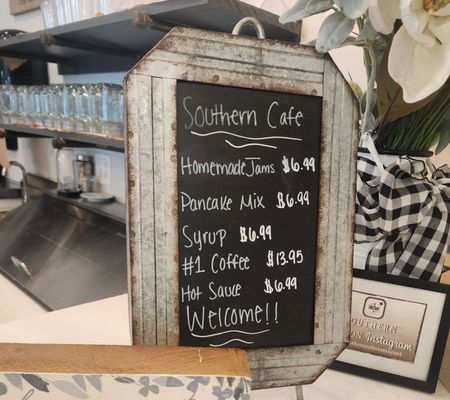 Southern Cafe
Homemade Jams $6.99
Pancake Mix $6.99
Syrup $6.99
#1 Coffee $13.95
Hot Sauce $6.99
Welcome!!
SOUTHERN
ON INSTAGRAM